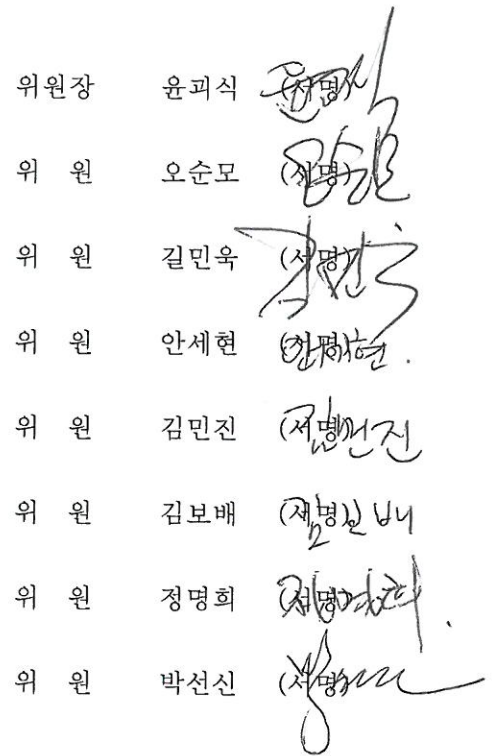 위원장 윤괴식 (서명)
위 원 오순모 (서명)
위 원 길민욱 (서명)
위 원 안세현 (서명) 안세현.
위 원 김민진 (서명) 김민진
위 원 김보배 (서명) 김보배
위 원 정명희 (서명) 정명희.
위 원 박선신 (서명)